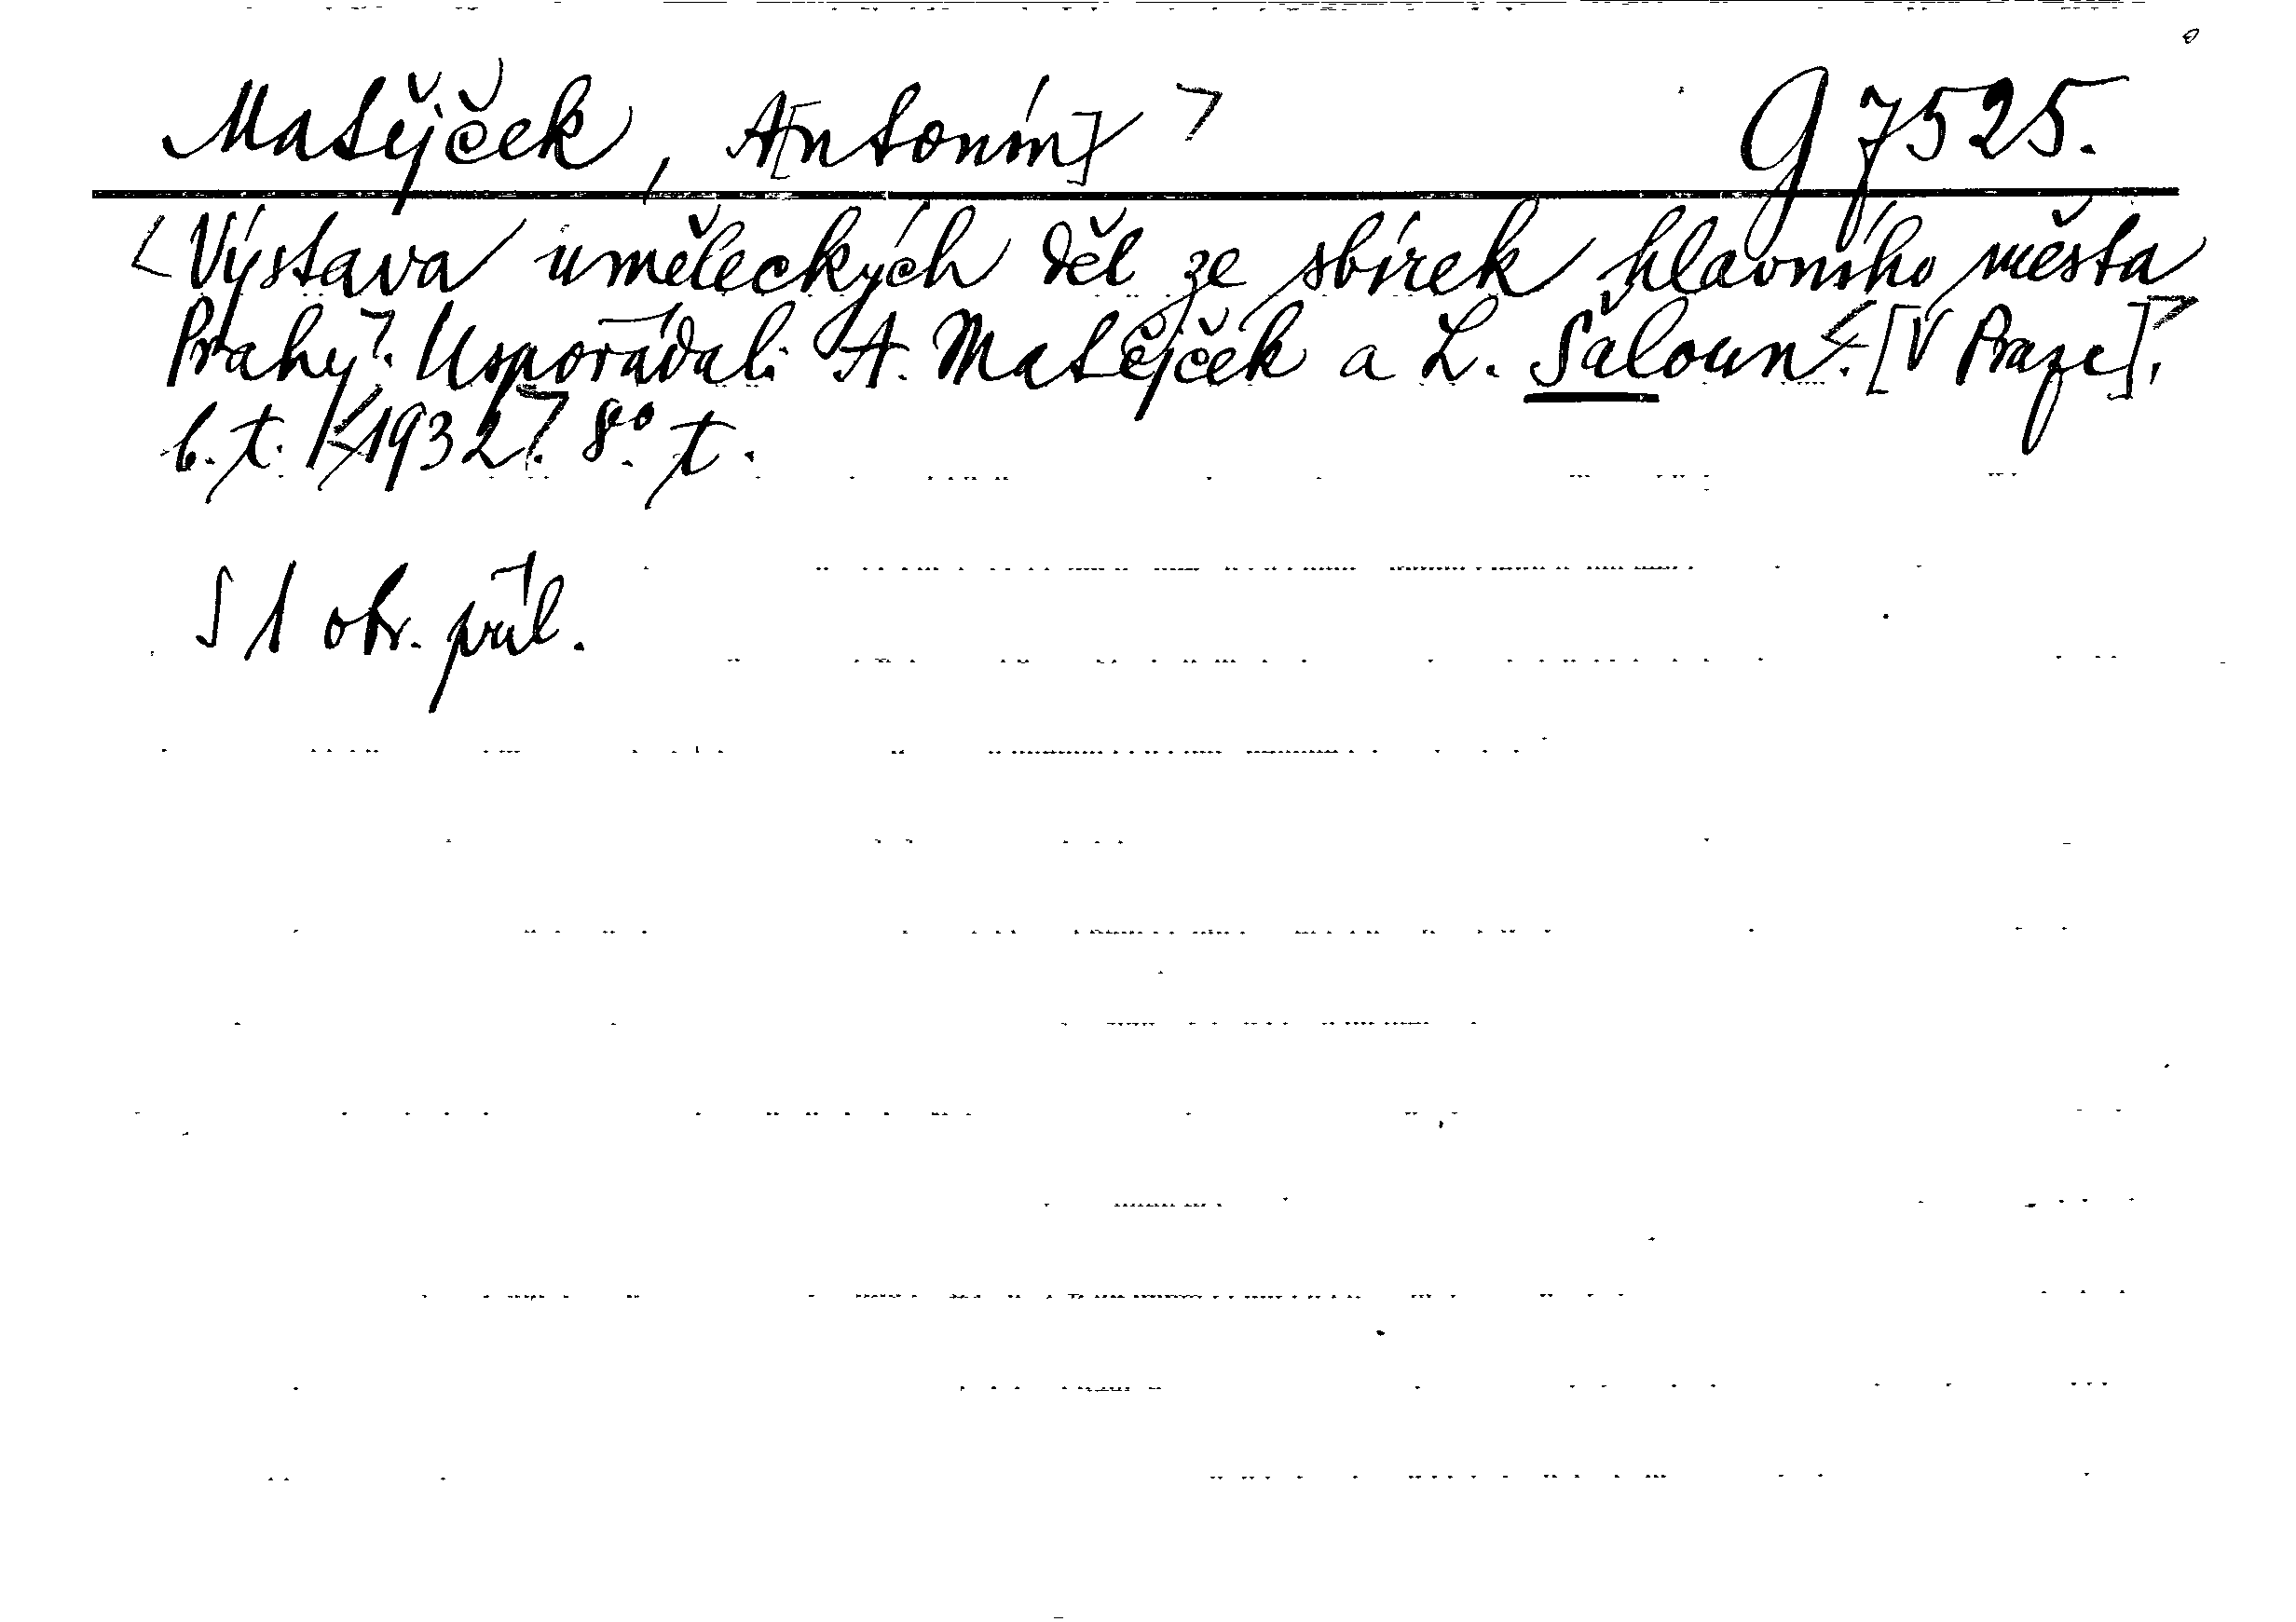 Matějček, A[ntonín] > G 7525.
<Výstava uměleckých děl ze sbírek hlavního města
Prahy>. Uspořádali A. Matějček a L. Šaloun<. [V Praze]>,
b. t. <1932>. 8°. t.
S 1 obr. příl.